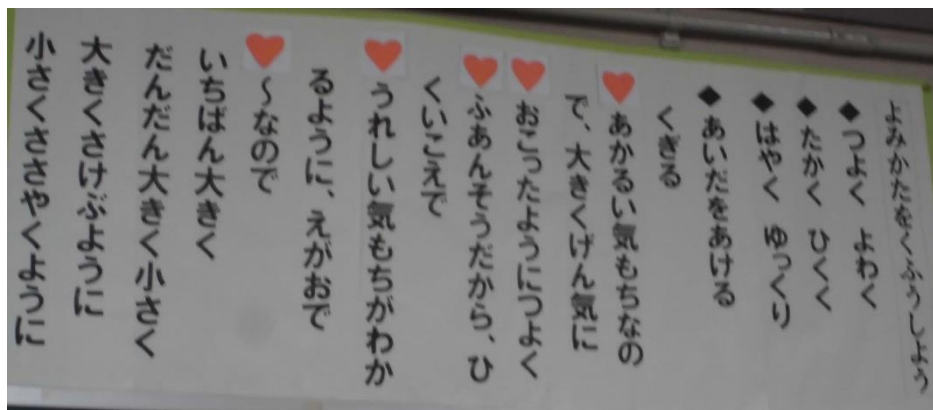 よみかたをくふうしよう
◆つよく よわく
◆たかく ひくく
◆はやく ゆっくり
◆あいだをあける
くぎる
♥あかるい気もちなの
で、大きくげん気に
♥おこったようにつよく
♥ふあんそうだから、ひ
くいこえで
♥うれしい気もちがわか
るように、えがおで
♥~なので
いちばん大きく
だんだん大きく小さく
大きくさけぶように
小さくささやくように